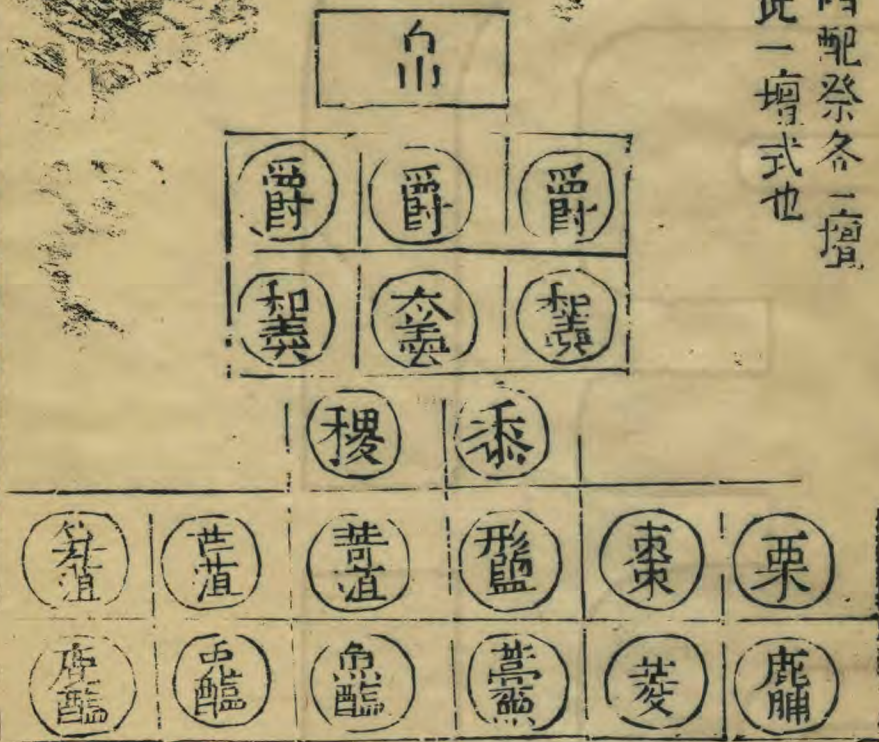 四配祭各一壇
此一壇式也
帛
爵 爵 爵
和羹 太羹 和羹
稷 黍
笋菹 芹菹 菁菹 形鹽 棗 栗
醓醢 兎醢 魚醢 藁魚 菱 鹿脯